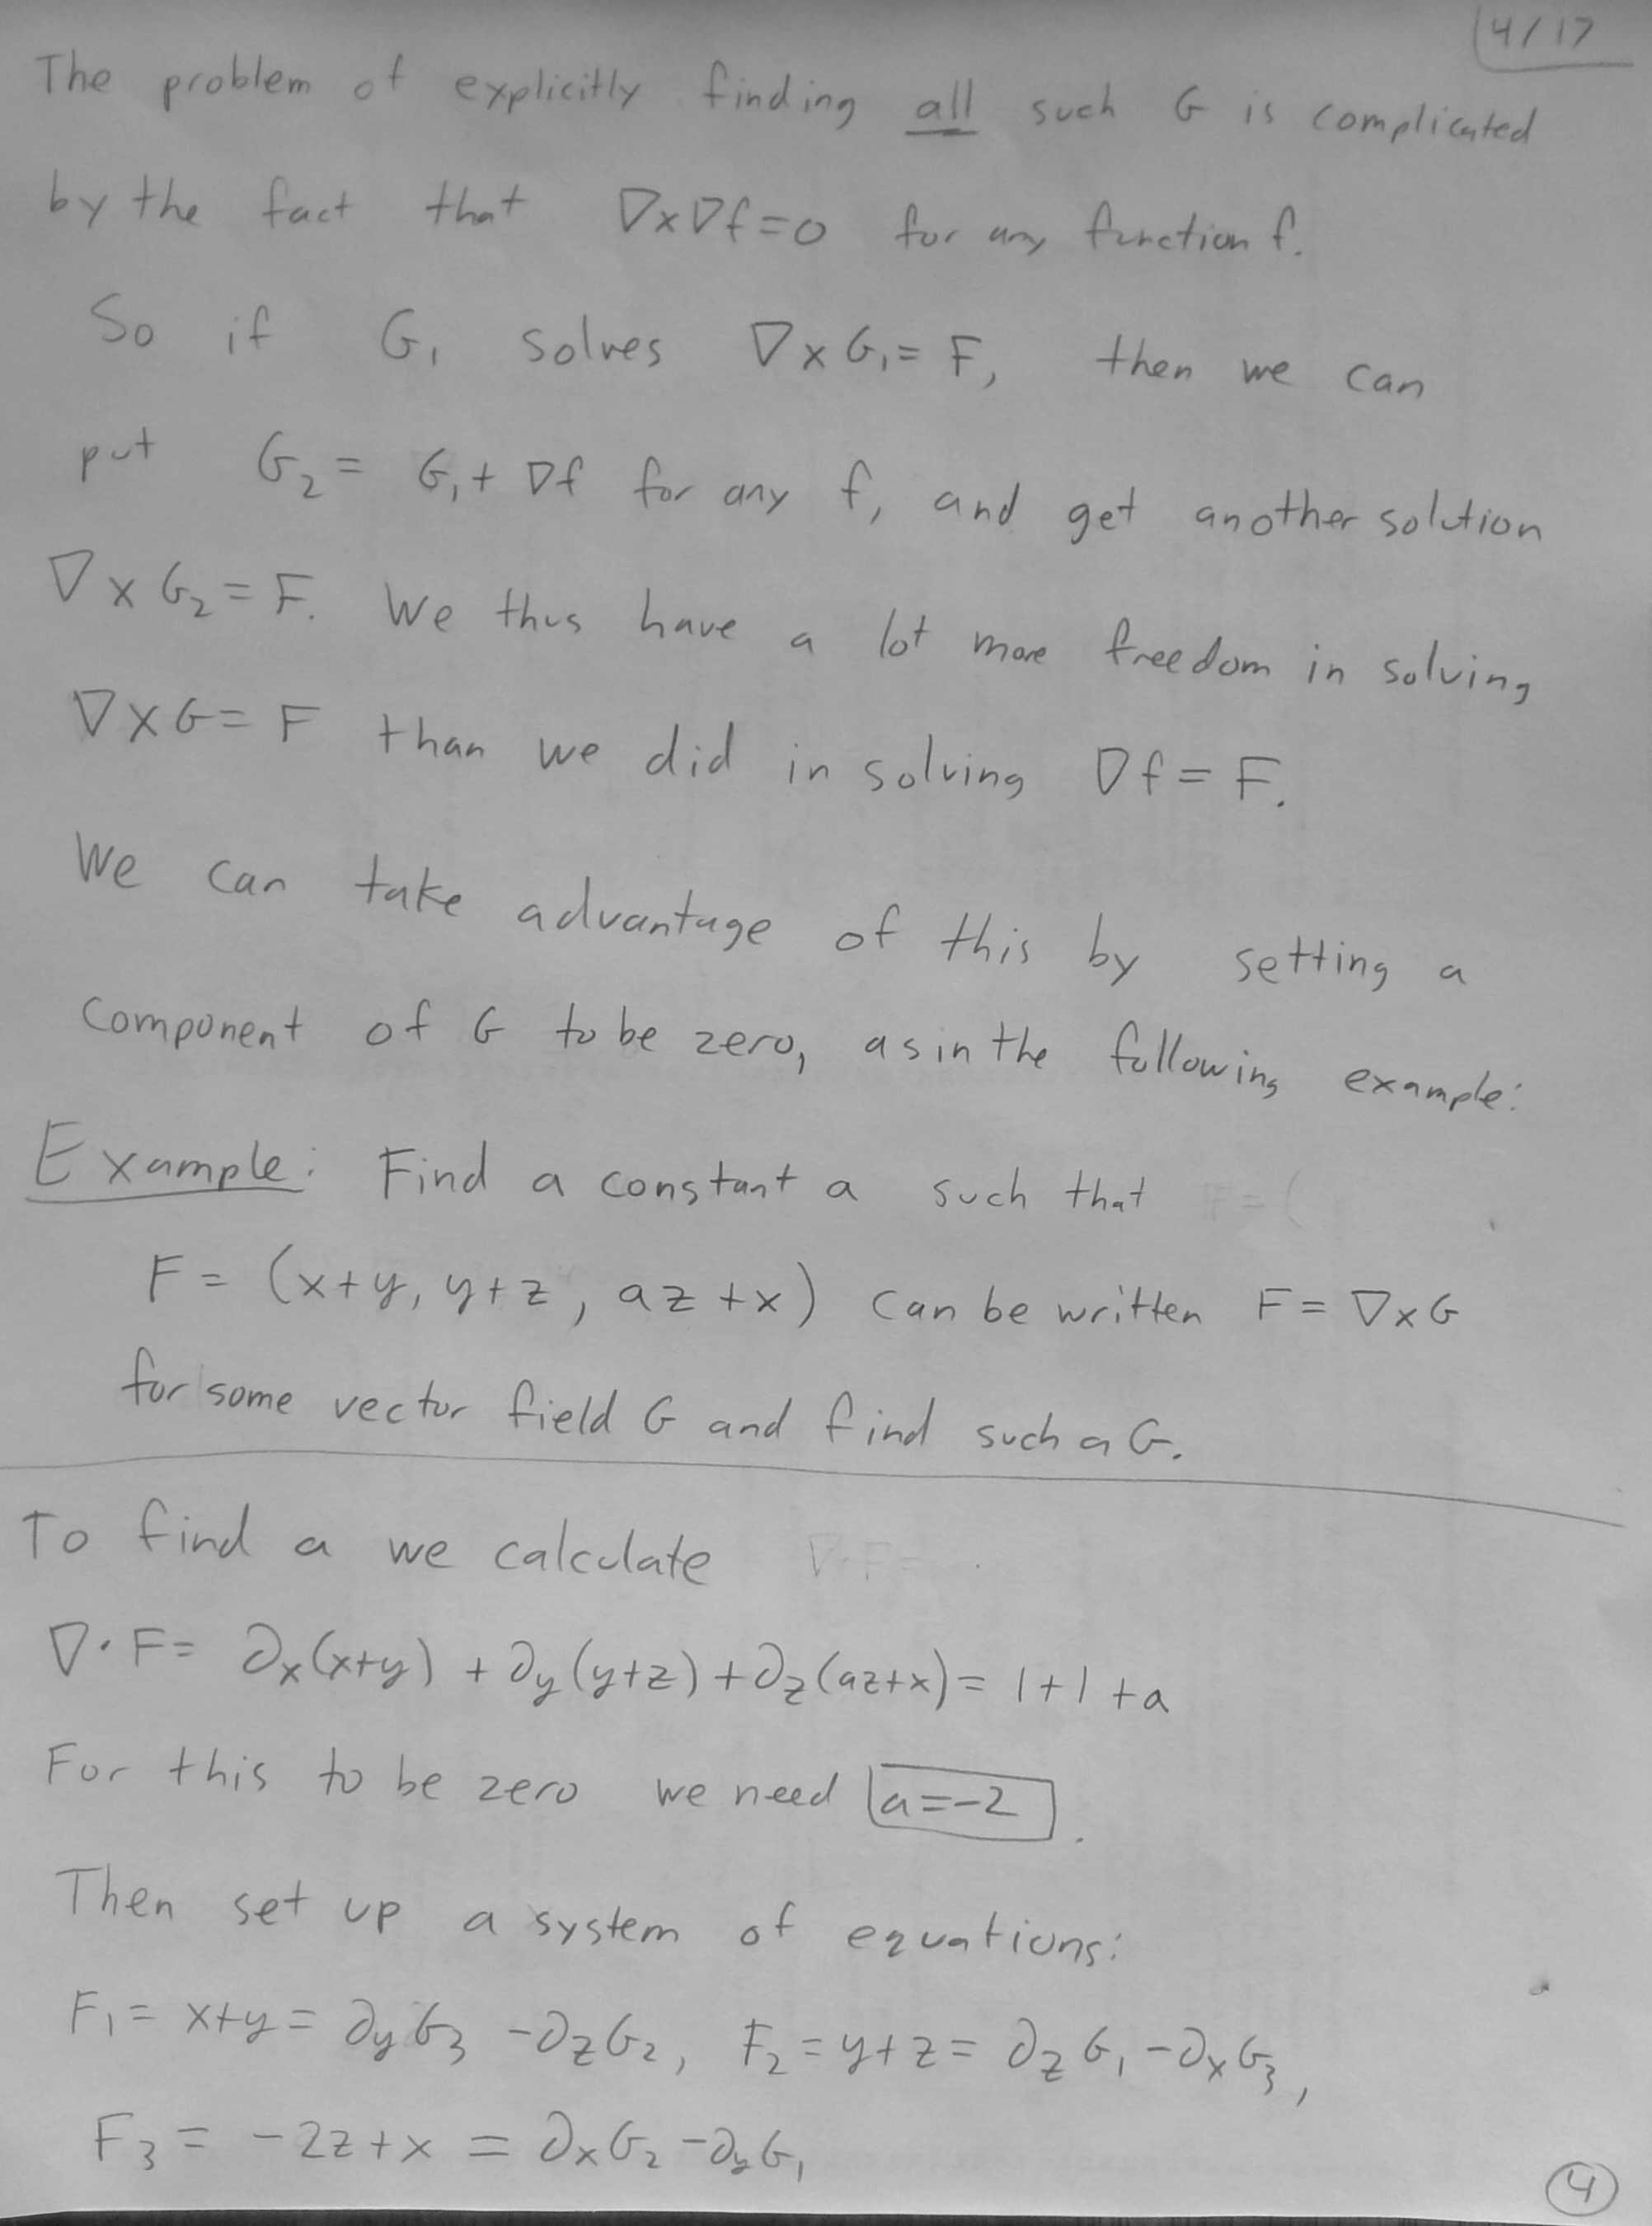 4/17
The problem of explicitly finding all such G is complicated
by the fact that ∇×∇f=0 for any function f.
So if G₁ solves ∇×G₁=F, then we can
put G₂ = G₁+∇f for any f, and get another solution
∇×G₂=F. We thus have a lot more freedom in solving
∇×G=F than we did in solving ∇f=F.
We can take advantage of this by setting a
component of G to be zero, as in the following example:
Example: Find a constant a such that
F = (x+y, y+z, az+x) can be written F = ∇×G
for some vector field G and find such a G.
To find a we calculate
∇·F= ∂x(x+y) + ∂y(y+z) + ∂z(az+x) = 1+1+a
For this to be zero we need a=-2.
Then set up a system of equations:
F₁= x+y = ∂yG₃ -∂zG₂, F₂ = y+z = ∂zG₁ -∂xG₃,
F₃ = -2z+x = ∂xG₂ -∂yG₁
4